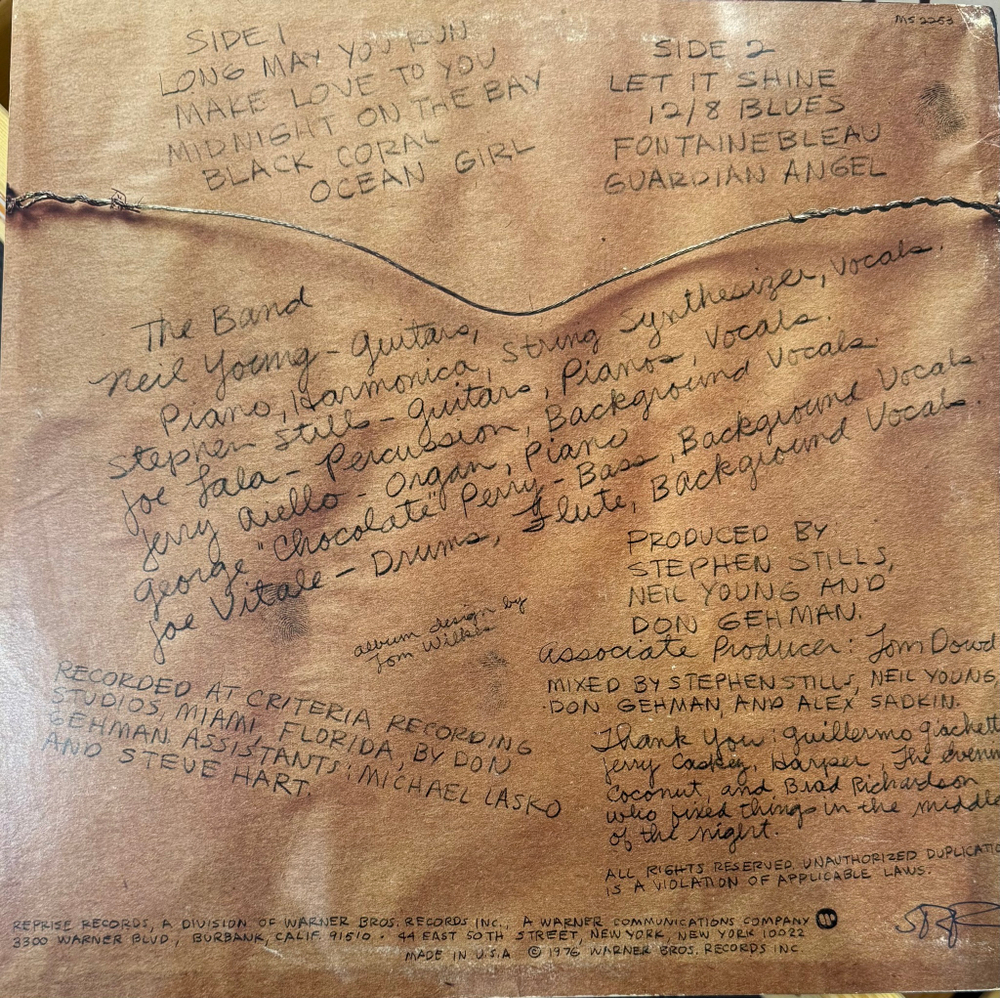 MS 2253
SIDE 1
LONG MAY YOU RUN
MAKE LOVE TO YOU
MIDNIGHT ON THE BAY
BLACK CORAL
OCEAN GIRL
SIDE 2
LET IT SHINE
12/8 BLUES
FONTAINEBLEAU
GUARDIAN ANGEL
The Band
Neil Young - Guitars,
Piano, Harmonica, String Synthesizer, Vocals.
Stephen Stills - Guitars, Pianos, Vocals.
Joe Lala - Percussion, Background Vocals.
Jerry Aiello - Organ, Piano
George "Chocolate" Perry - Bass, Background Vocals.
Joe Vitale - Drums, Flute, Background Vocals.
album design by
Tom Wilkes
RECORDED AT CRITERIA RECORDING
STUDIOS, MIAMI, FLORIDA, BY DON
GEHMAN. ASSISTANTS: MICHAEL LASKO
AND STEVE HART.
PRODUCED BY
STEPHEN STILLS,
NEIL YOUNG AND
DON GEHMAN.
Associate Producer: Tom Dowd
MIXED BY STEPHEN STILLS, NEIL YOUNG,
DON GEHMAN, AND ALEX SADKIN.
Thank You: Guillermo Giachett
Jerry Caskey, Harper, The evenin
Coconut, and Brad Richardson
who fixed things in the middle
of the night.
ALL RIGHTS RESERVED. UNAUTHORIZED DUPLICATIO
IS A VIOLATION OF APPLICABLE LAWS.
REPRISE RECORDS, A DIVISION OF WARNER BROS. RECORDS INC., A WARNER COMMUNICATIONS COMPANY
3300 WARNER BLVD., BURBANK, CALIF. 91510 · 44 EAST 50TH STREET, NEW YORK, NEW YORK 10022
MADE IN U.S.A. © 1976 WARNER BROS. RECORDS INC.